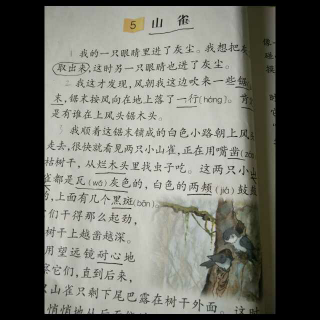 5 山雀
1 我的一只眼睛里进了灰尘。我想把灰
取出来,这时另一只眼睛也进了灰尘。
2 我这才发现,风朝我这边吹来一些锯
末,锯末按风向在地上落了一行(háng)。
是有谁在上风头锯木头。
3 我顺着这锯末铺成的白色小路朝上风头
走去,很快就看见两只小山雀,正在用嘴凿
枯树干,从烂木头里找虫子吃。这两只小山
雀都是瓦(wǎ)灰色的,白色的两颊(jiá)鼓鼓
的,上面有几个黑斑(bān)。
们干得那么起劲,
树干上越凿越深。
用望远镜耐心地
察它们,直到后来,
山雀只剩下尾巴露在树干外面。这时
悄悄地从后面